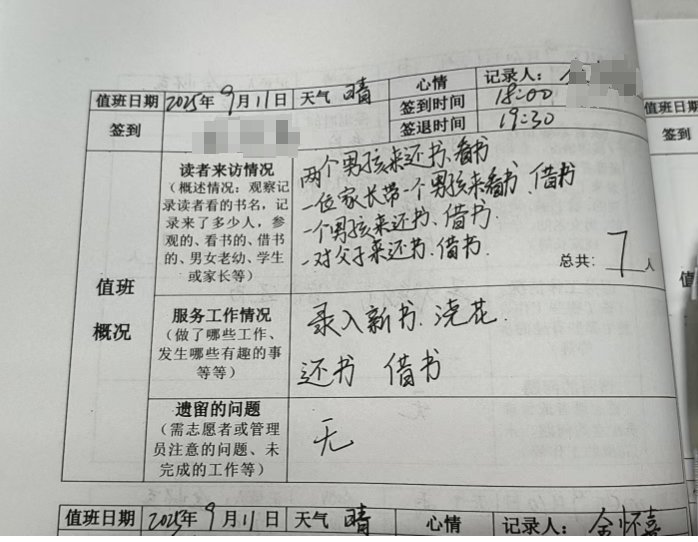 值班日期 2025年9月11日 天气 晴 心情 记录人：
签到 签到时间 18:00
签退时间 19:30
值班概况
读者来访情况
（概述情况：观察记
录读者看的书名，记
录来了多少人，参
观的、看书的、借书
的、男女老幼、学生
或家长等）
两个男孩来还书、看书
一位家长带一个男孩来看书、借书
一个男孩来还书、借书.
一对父子来还书、借书.
总共：7人
服务工作情况
（做了哪些工作、
发生哪些有趣的事
等等）
录入新书、浇花.
还书 借书
遗留的问题
（需志愿者或管理
员注意的问题、未
完成的工作等）
无
值班日期 2025年9月11日 天气 晴 心情 记录人：
值班日期
签到